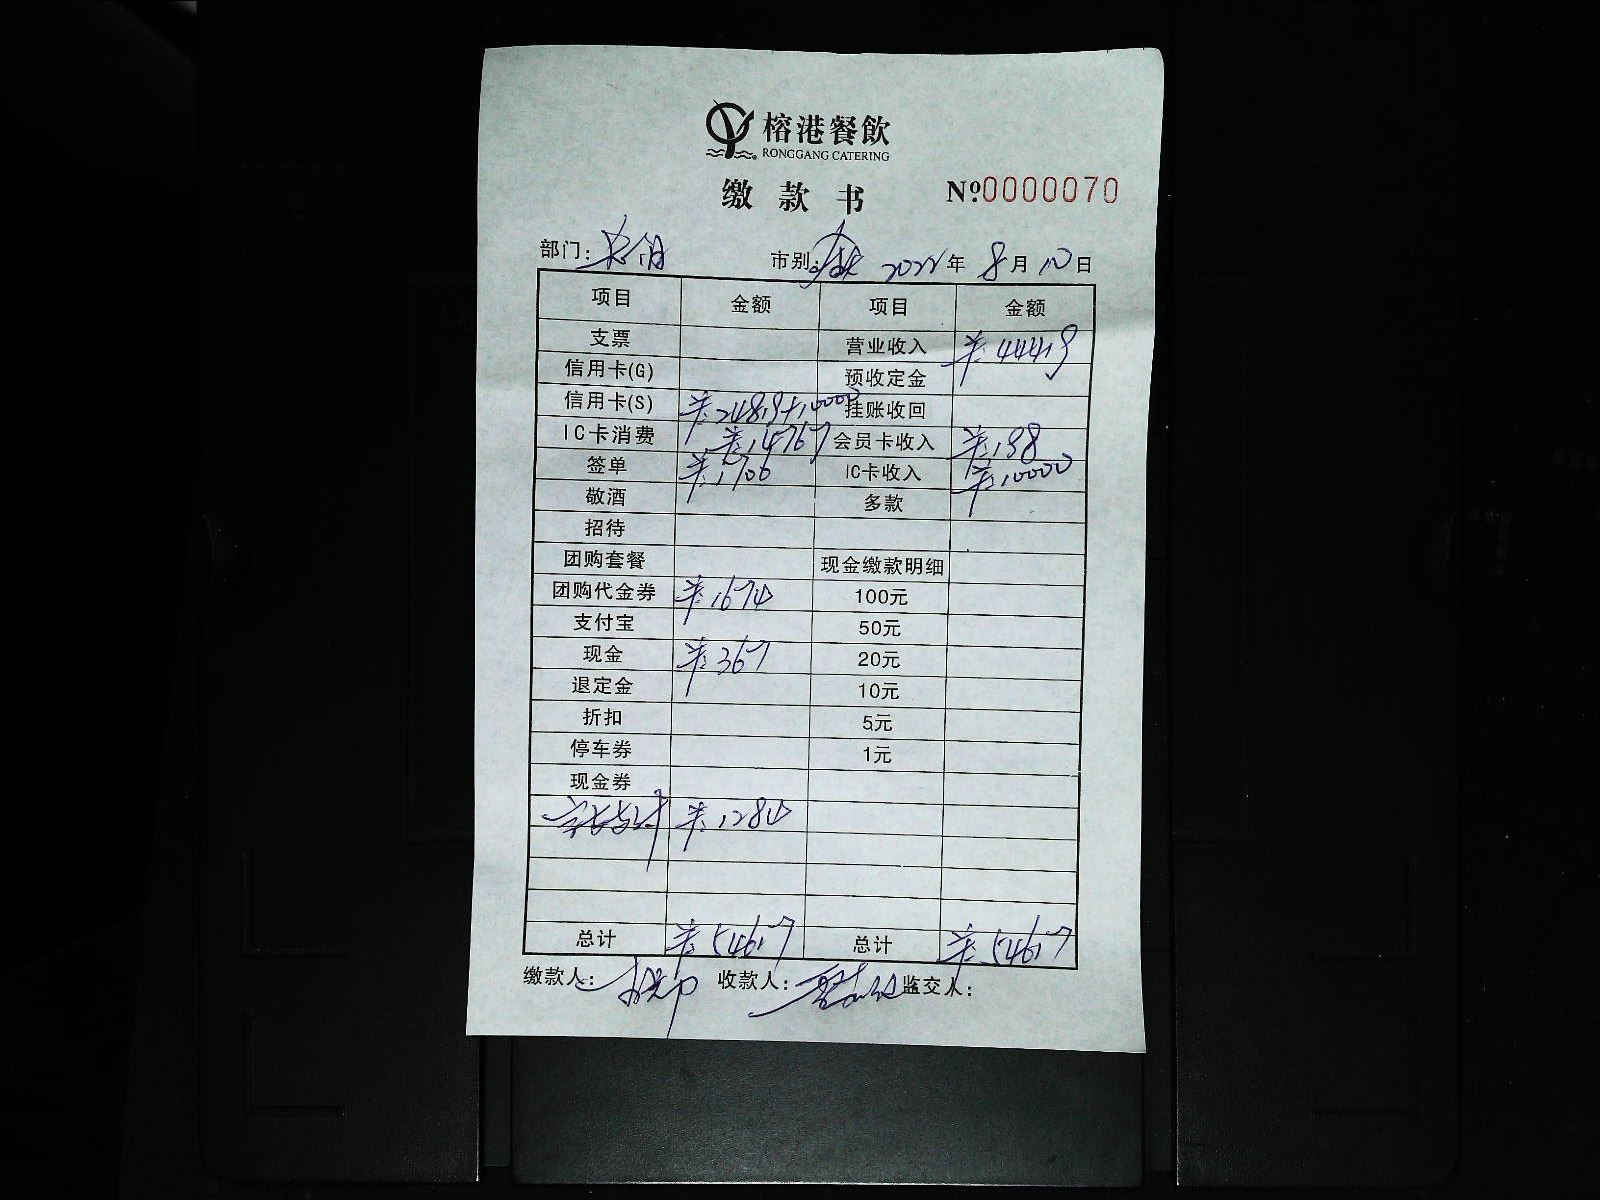 榕港餐飲
RONGGANG CATERING
缴款书 №0000070
部门: 市别: 2022年8月10日
项目 金额 项目 金额
支票 营业收入 ¥:44419
信用卡(G) 预收定金
信用卡(S) ¥:24819+10000 挂账收回
IC卡消费 ¥:14767 会员卡收入 ¥:198
签单 ¥:1706 IC卡收入 ¥:10000
敬酒 多款
招待
团购套餐 现金缴款明细
团购代金券 ¥:1674 100元
支付宝 50元
现金 ¥:367 20元
退定金 10元
折扣 5元
停车券 1元
现金券
¥:1284
总计 ¥:54617 总计 ¥:54617
缴款人: 收款人: 监交人: